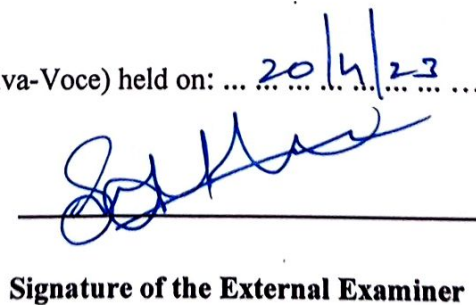 va-Voce) held on: ... 20/4/23 ...
Signature of the External Examiner